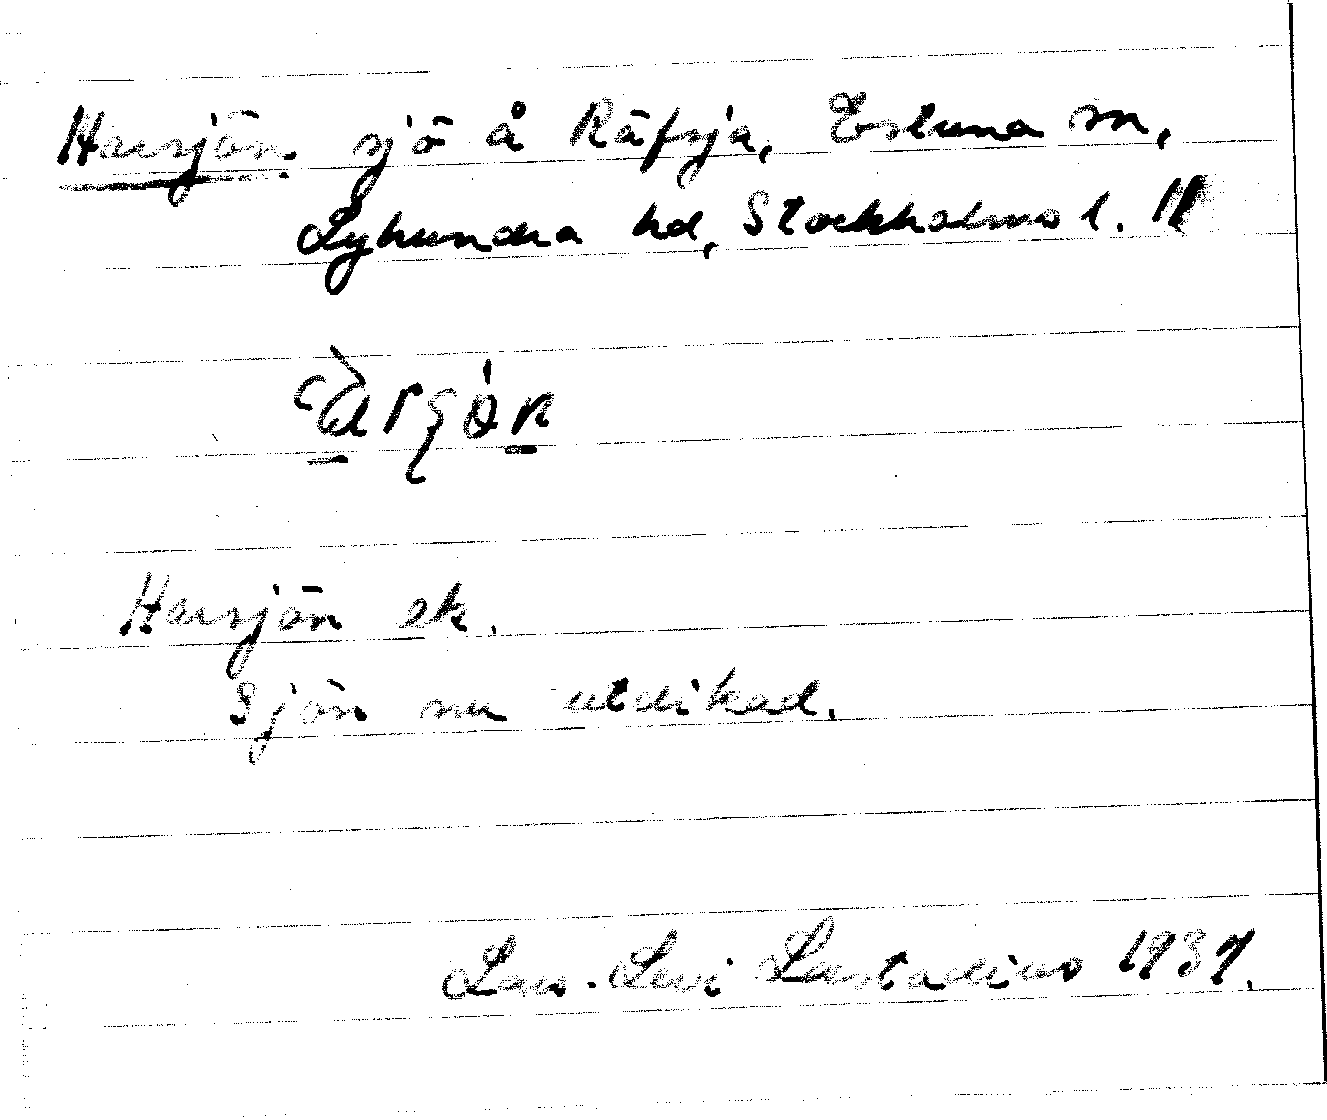 Harsjön sjö å Räfsja, Estuna sn,
Lyhundra hd, Stockholms l.
Harsjön ek.
Sjön nu utdikad.
Lars-Levi Læstadius 1937.